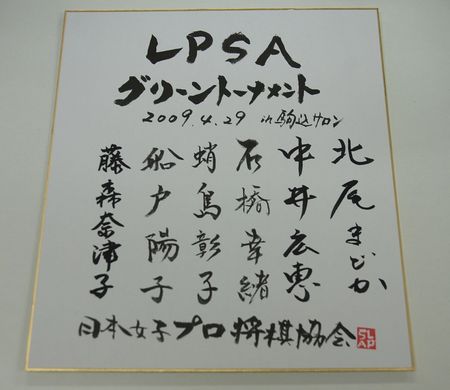 LPSA
グリーントーナメント
2009.4.29 in 駒込サロン
北尾まどか
中井広恵
石橋幸緒
蛸島彰子
船戸陽子
藤森奈津子
日本女子プロ将棋協会
LPSA